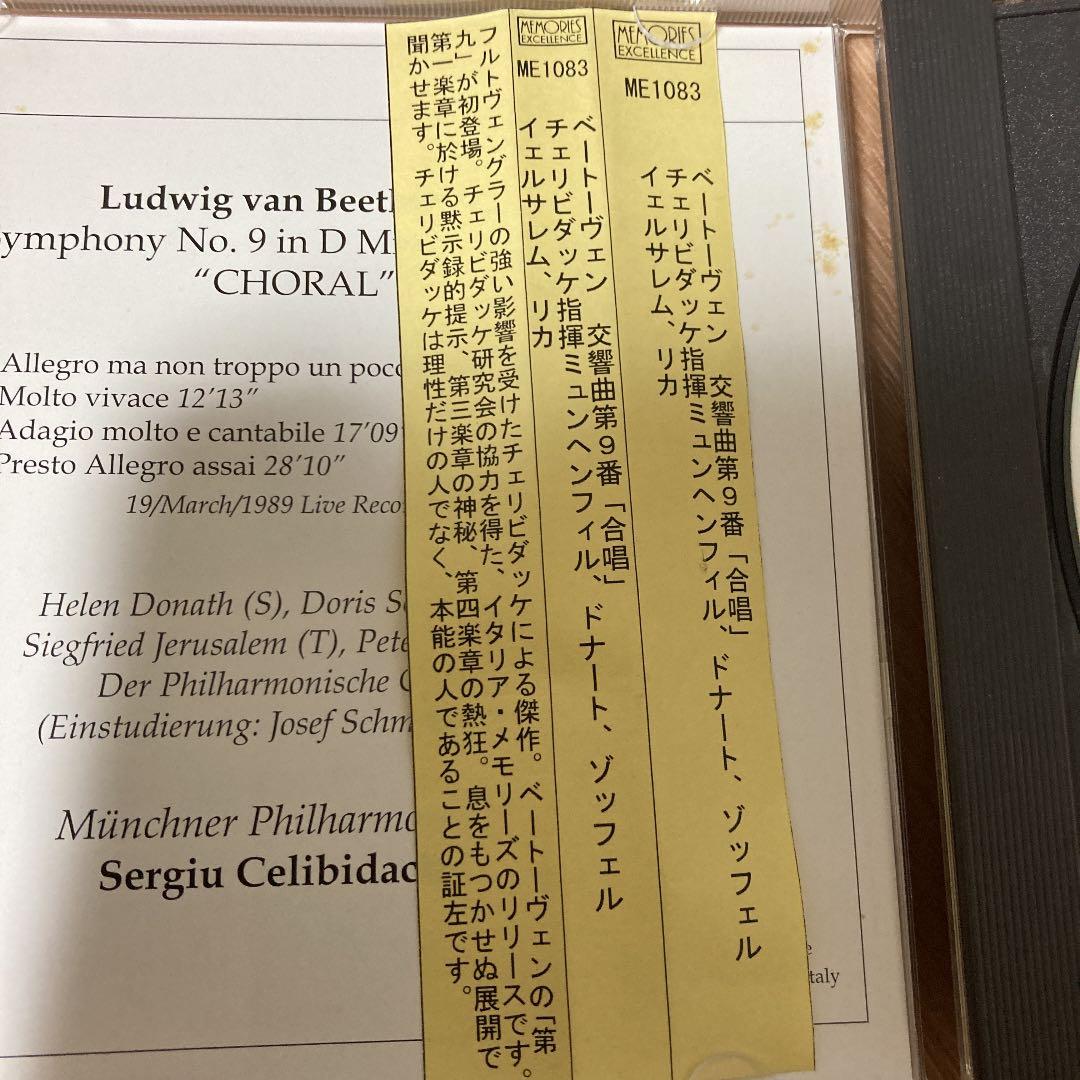 Ludwig van Beet
Symphony No. 9 in D M
“CHORAL”
Allegro ma non troppo un poco
Molto vivace 12’13”
Adagio molto e cantabile 17’09
Presto Allegro assai 28’10”
19/March/1989 Live Reco
Helen Donath (S), Doris S
Siegfried Jerusalem (T), Pete
Der Philharmonische
(Einstudierung: Josef Schm
Münchner Philharmo
Sergiu Celibidac
taly
MEMORIES
EXCELLENCE
ME1083
ベートーヴェン 交響曲第9番「合唱」
チェリビダッケ指揮ミュンヘンフィル、ドナート、ゾッフェル
イェルサレム、リカ
MEMORIES
EXCELLENCE
ME1083
ベートーヴェン 交響曲第9番「合唱」
チェリビダッケ指揮ミュンヘンフィル、ドナート、ゾッフェル
イェルサレム、リカ
フルトヴェングラーの強い影響を受けたチェリビダッケによる傑作。ベートーヴェンの「第
九」が初登場。チェリビダッケ研究会の協力を得た、イタリア・メモリーズのリリースです。
第一楽章に於ける黙示録的提示、第三楽章の神秘、第四楽章の熱狂。息をもつかせぬ展開で
聞かせます。チェリビダッケは理性だけの人でなく、本能の人であることの証左です。